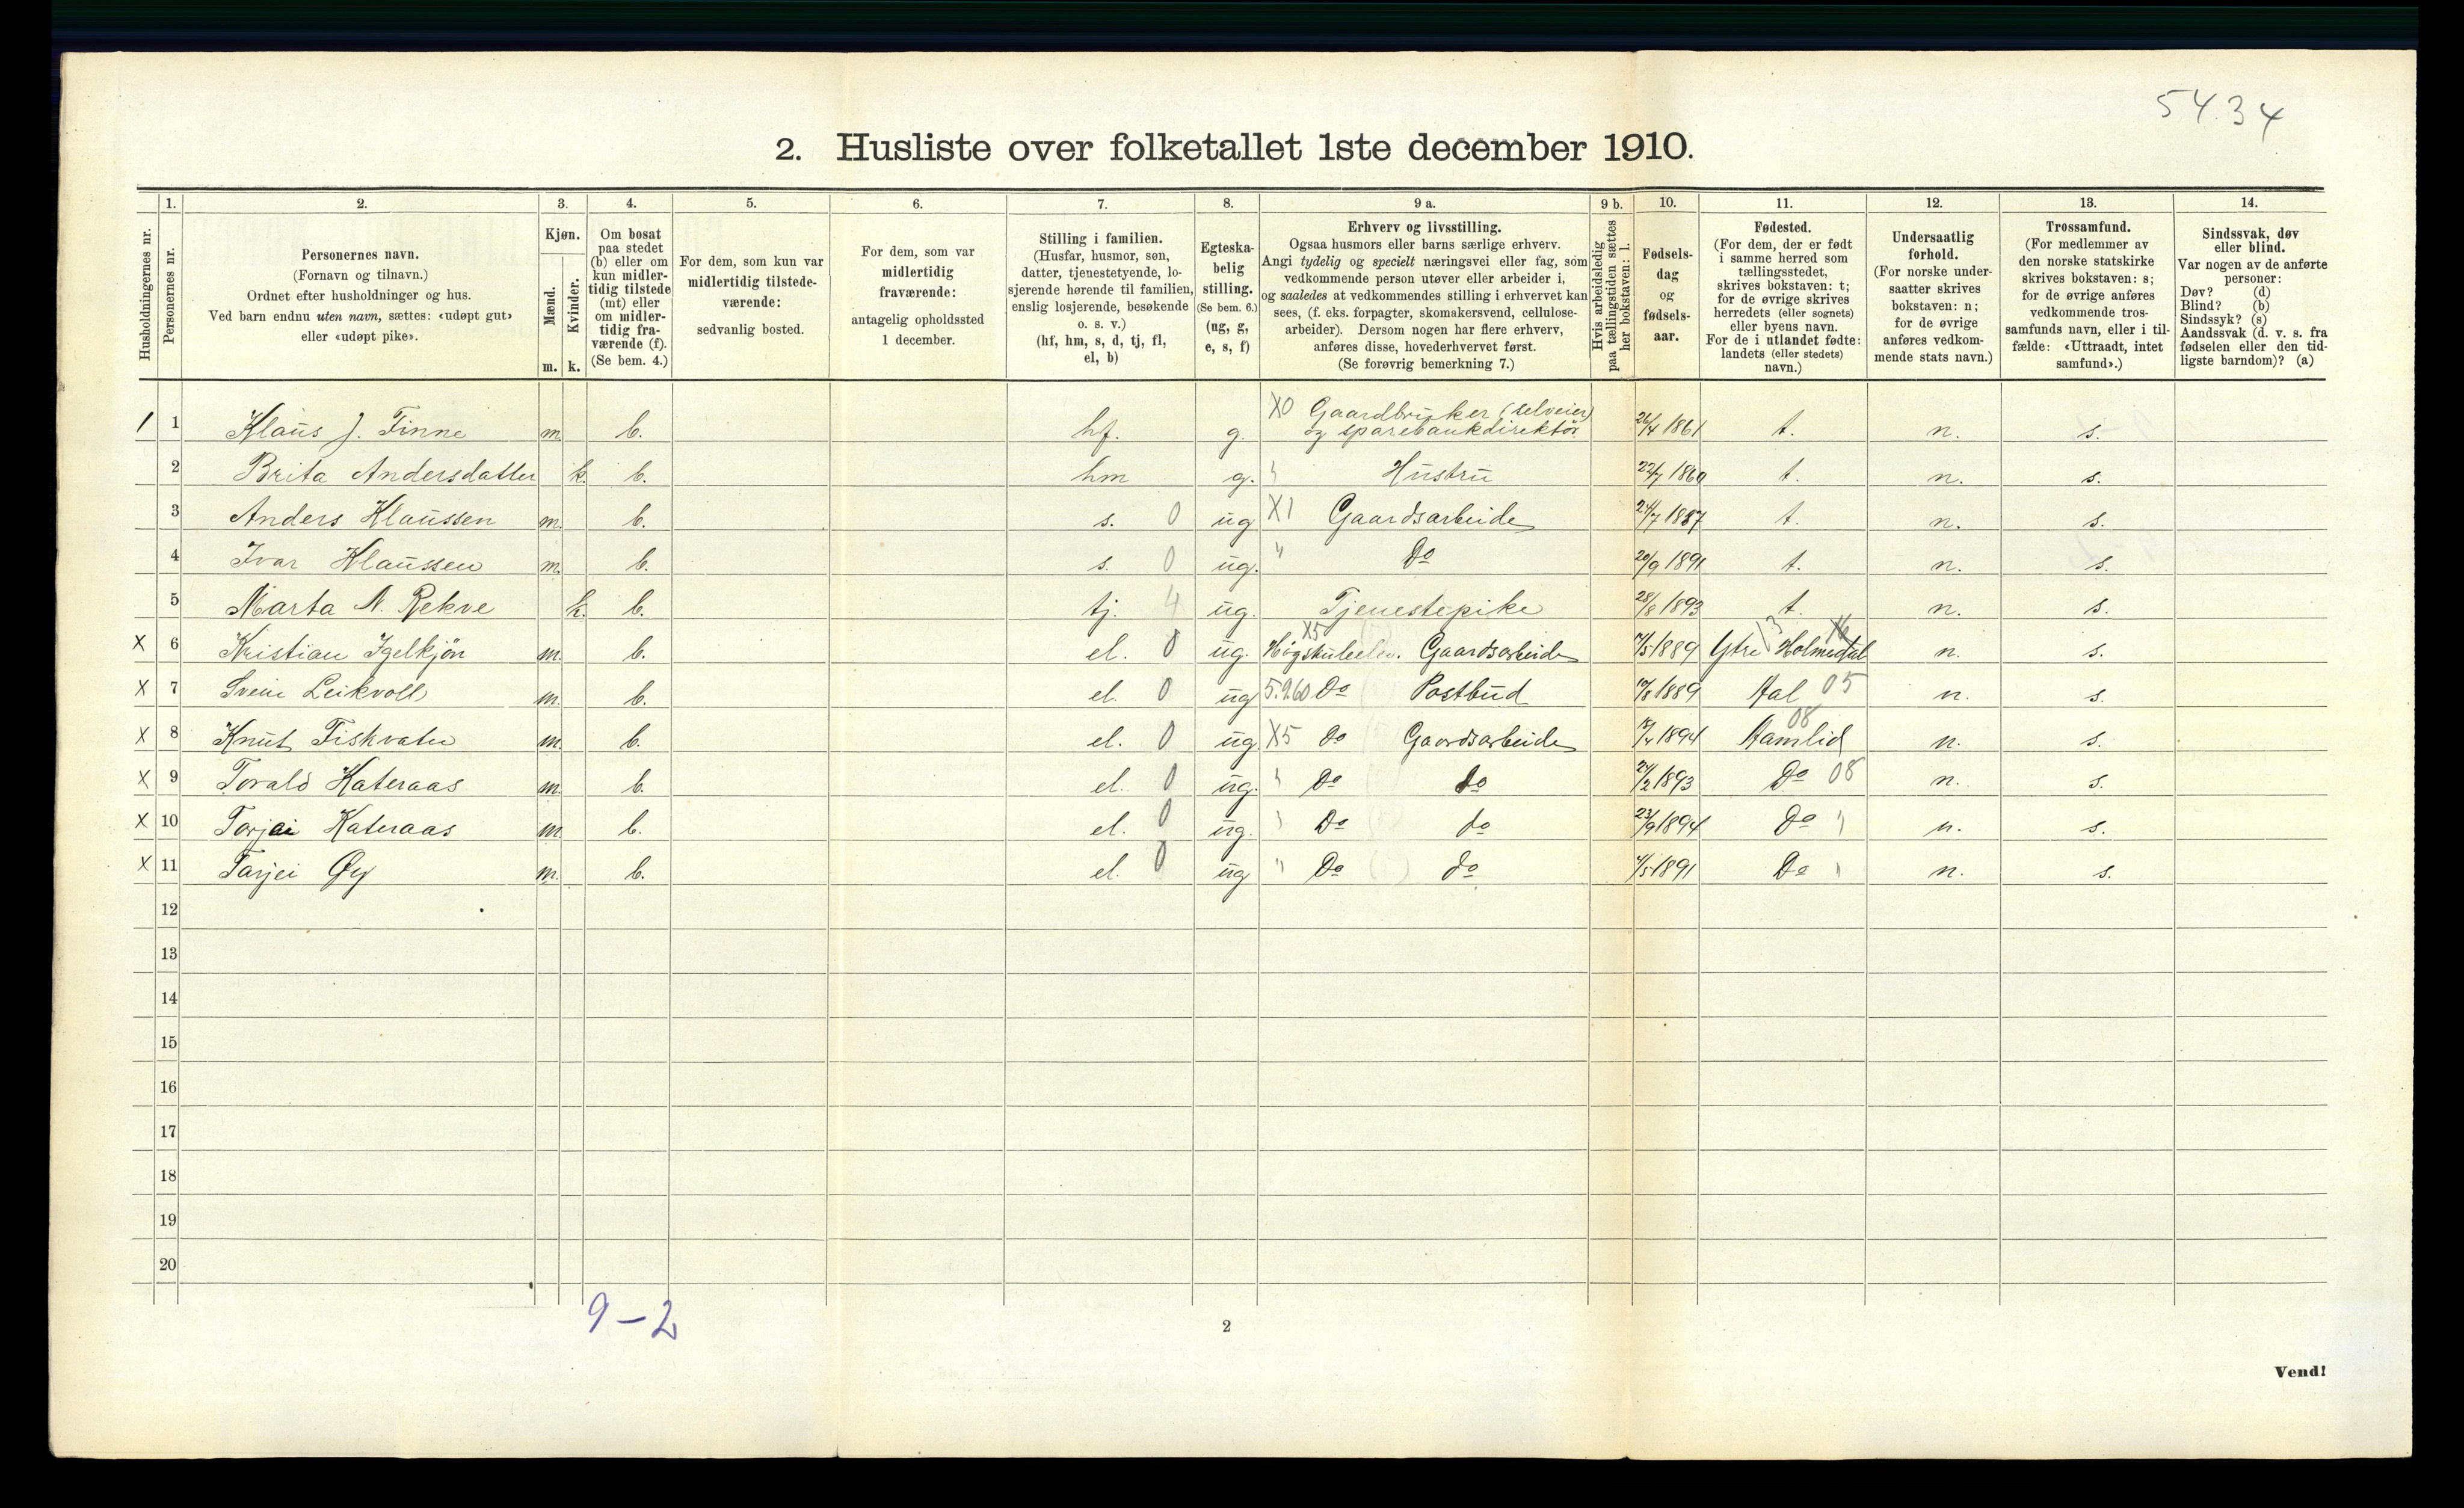 54.34
2. Husliste over folketallet 1ste december 1910.
Husholdningernes nr.
1. Personernes nr.
2. Personernes navn.
(Fornavn og tilnavn.)
Ordnet efter husholdninger og hus.
Ved barn endnu uten navn, sættes: «udøpt gut»
eller «udøpt pike».
3. Kjøn.
Mænd. Kvinder.
m. k.
4. Om bosat
paa stedet
(b) eller om
kun midler-
tidig tilstede
(mt) eller
om midler-
tidig fra-
værende (f).
(Se bem. 4.)
5. For dem, som kun var
midlertidig tilstede-
værende:
sedvanlig bosted.
6. For dem, som var
midlertidig
fraværende:
antagelig opholdssted
1 december.
7. Stilling i familien.
(Husfar, husmor, søn,
datter, tjenestetyende, lo-
sjerende hørende til familien,
enslig losjerende, besøkende
o. s. v.)
(hf, hm, s, d, tj, fl,
el, b)
8. Egteska-
belig
stilling.
(Se bem. 6.)
(ug, g,
e, s, f)
9 a. Erhverv og livsstilling.
Ogsaa husmors eller barns særlige erhverv.
Angi tydelig og specielt næringsvei eller fag, som
vedkommende person utøver eller arbeider i,
og saaledes at vedkommendes stilling i erhvervet kan
sees, (f. eks. forpagter, skomakersvend, cellulose-
arbeider). Dersom nogen har flere erhverv,
anføres disse, hovederhvervet først.
(Se forøvrig bemerkning 7.)
9 b. Hvis arbeidsledig
paa tællingstiden sættes
her bokstaven: l.
10. Fødsels-
dag
og
fødsels-
aar.
11. Fødested.
(For dem, der er født
i samme herred som
tællingsstedet,
skrives bokstaven: t;
for de øvrige skrives
herredets (eller sognets)
eller byens navn.
For de i utlandet fødte:
landets (eller stedets)
navn.)
12. Undersaatlig
forhold.
(For norske under-
saatter skrives
bokstaven: n;
for de øvrige
anføres vedkom-
mende stats navn.)
13. Trossamfund.
(For medlemmer av
den norske statskirke
skrives bokstaven: s;
for de øvrige anføres
vedkommende tros-
samfunds navn, eller i til-
fælde: «Uttraadt, intet
samfund».)
14. Sindssvak, døv
eller blind.
Var nogen av de anførte
personer:
Døv? (d)
Blind? (b)
Sindssyk? (s)
Aandssvak (d. v. s. fra
fødselen eller den tid-
ligste barndom)? (a)
1 1 Klaus J. Finne m. b. hf. g. X0 Gaardbruker (selveier) og sparebankdirektør 26/4 1861 t. n. s.
2 Brita Andersdatter k. b. hm g. " Hustru 22/7 1860 t. n. s.
3 Anders Klaussen m. b. s. 0 ug X1 Gaardsarbeider 24/7 1887 t. n. s.
4 Ivar Klaussen m. b. s. 0 ug. " Do 20/9 1891 t. n. s.
5 Marta N. Rekve k. b. tj. 4 ug. Tjenestepike 28/8 1893 t. n. s.
X 6 Kristian Igelkjøn m. b. el. 0 ug. X5 Høgskuleelev. Gaardsarbeider 7/5 1889 Ytre Holmedal 13 n. s.
X 7 Svein Leikvoll m. b. el. 0 ug 5.260 Do Postbud 1889 Aal 05 n. s.
X 8 Knut Fiskvatn m. b. el. 0 ug. X5 do Gaardsarbeider 1894 08 n. s.
X 9 Torald Kateraas m. b. el. 0 ug. " Do do 24/2 1893 Do 08 n. s.
X 10 Torjei Kateraas m b. el. 0 ug. " Do do 23/9 1894 Do " n. s.
X 11 Tarjei Øy m. b. el. 0 ug " Do do 4/5 1891 Do " n. s.
12
13
14
15
16
17
18
19
20
9-2
2
Vend!